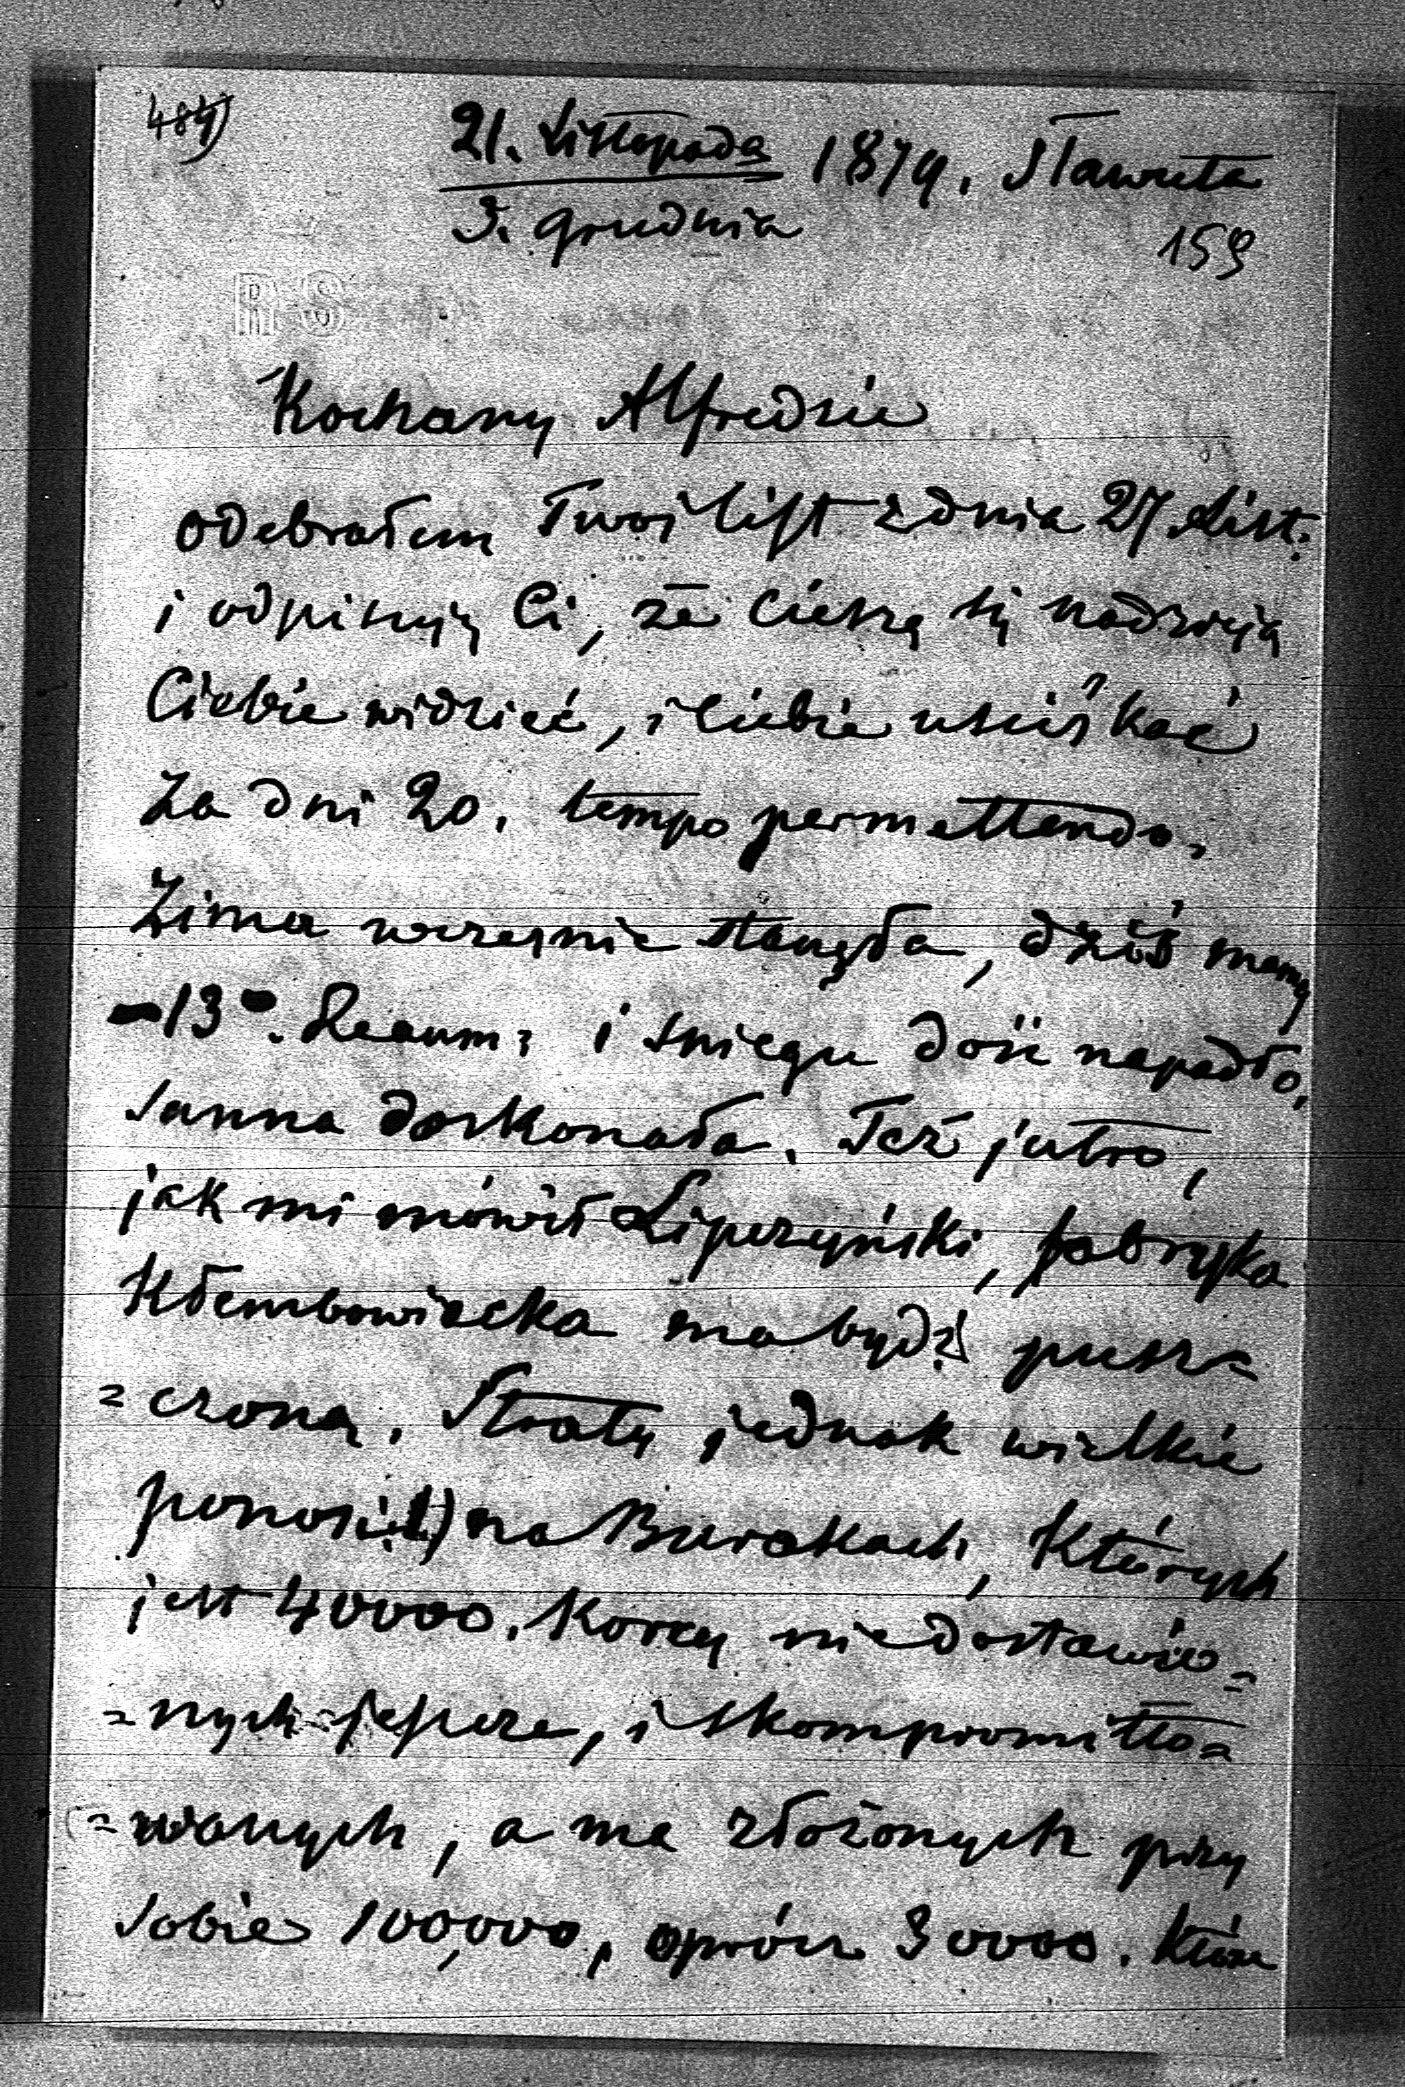 484)
21. Listopada 1879. Sławuta
3. grudnia
159
RS
Kochany Alfredzie
odebrałem Twoj list z dnia 27. List:
i odpisuję Ci, że cieszę się nadzieją
Ciebie widzieć, i Ciebie uściskać
za dni 20. tempo permettendo.
Zima wczesnie stanęła, dziś mamy
-13°. Reaum: i sniegu dość napadło,
sanna doskonała. Też jutro,
jak mi mówił Lipczyński, fabryka
Kłembowiecka ma bydź pusz=
=czoną. Straty jednak wielkie
ponosi: 1) na Burakach, których
jest 40000. Korcy niedostawio=
=nych jeszcze, i skompromitto=
=wanych, a ma złożonych przy
sobie 100,000, oprócz 30000. które